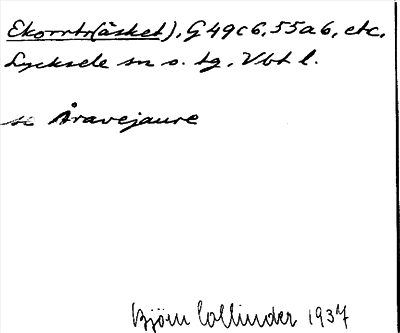 Ekorrtr(äsket), G 49 c 6, 55 a 6, etc.
Lycksele sn o. tg, Vbt l.
se Åravejaure
Björn Collinder 1937